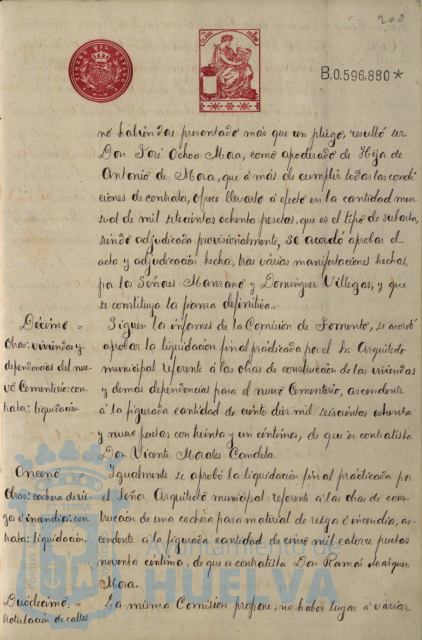 203
B.0.596.880*
no habiéndose presentado más que un pliego, resultó ser
Don José Ochoa Mora, como apoderado de Hija de
Antonio de Mora, que á más de cumplir todas las condi
ciones de contrata, ofrece llevarlo á efecto en la cantidad men
sual de mil setecientas ochenta pesetas, que es el tipo de subasta,
siendo adjudicada provisionalmente, se acordó aprobar el
acto y adjudicación hecha, tras varias manifestaciones hechas,
por los Señores Manzano y Dominguez Villegas, y que
se constituya la fianza definitiva.=
Décimo=
Obras: viviendas y
dependencias del nue
vo Cementerio: con
trata: liquidación
Siguen la informes de la Comisión de Fomento, se acordó
aprobar la liquidación final practicada por el Sr. Arquitecto
municipal referente á las obras de construcción de las viviendas
y demás dependencias para el nuevo Cementerio, ascendente
á la figurada cantidad de ciento diez mil seiscientas ochenta
y nueve pesetas con treinta y un céntimos, de que és contratista
Don Vicente Morales Candela.
Onceno=
Obras: cochera de rie
go é incendio: con
trata: liquidación.
Igualmente se aprobó la liquidación final practicada por
el Señor Arquitecto municipal referente á las obras de cons
trucción de una cochera para material de riego é incendio, as
cendente á la figurada cantidad de cinco mil catorce pesetas
noventa centimos, de que es contratista Don Ramón Marquez
Mora.
Duodécimo.=
Rotulación de calles
La misma Comisión propone, no haber lugar á variar
Ayuntamiento de
HUELVA